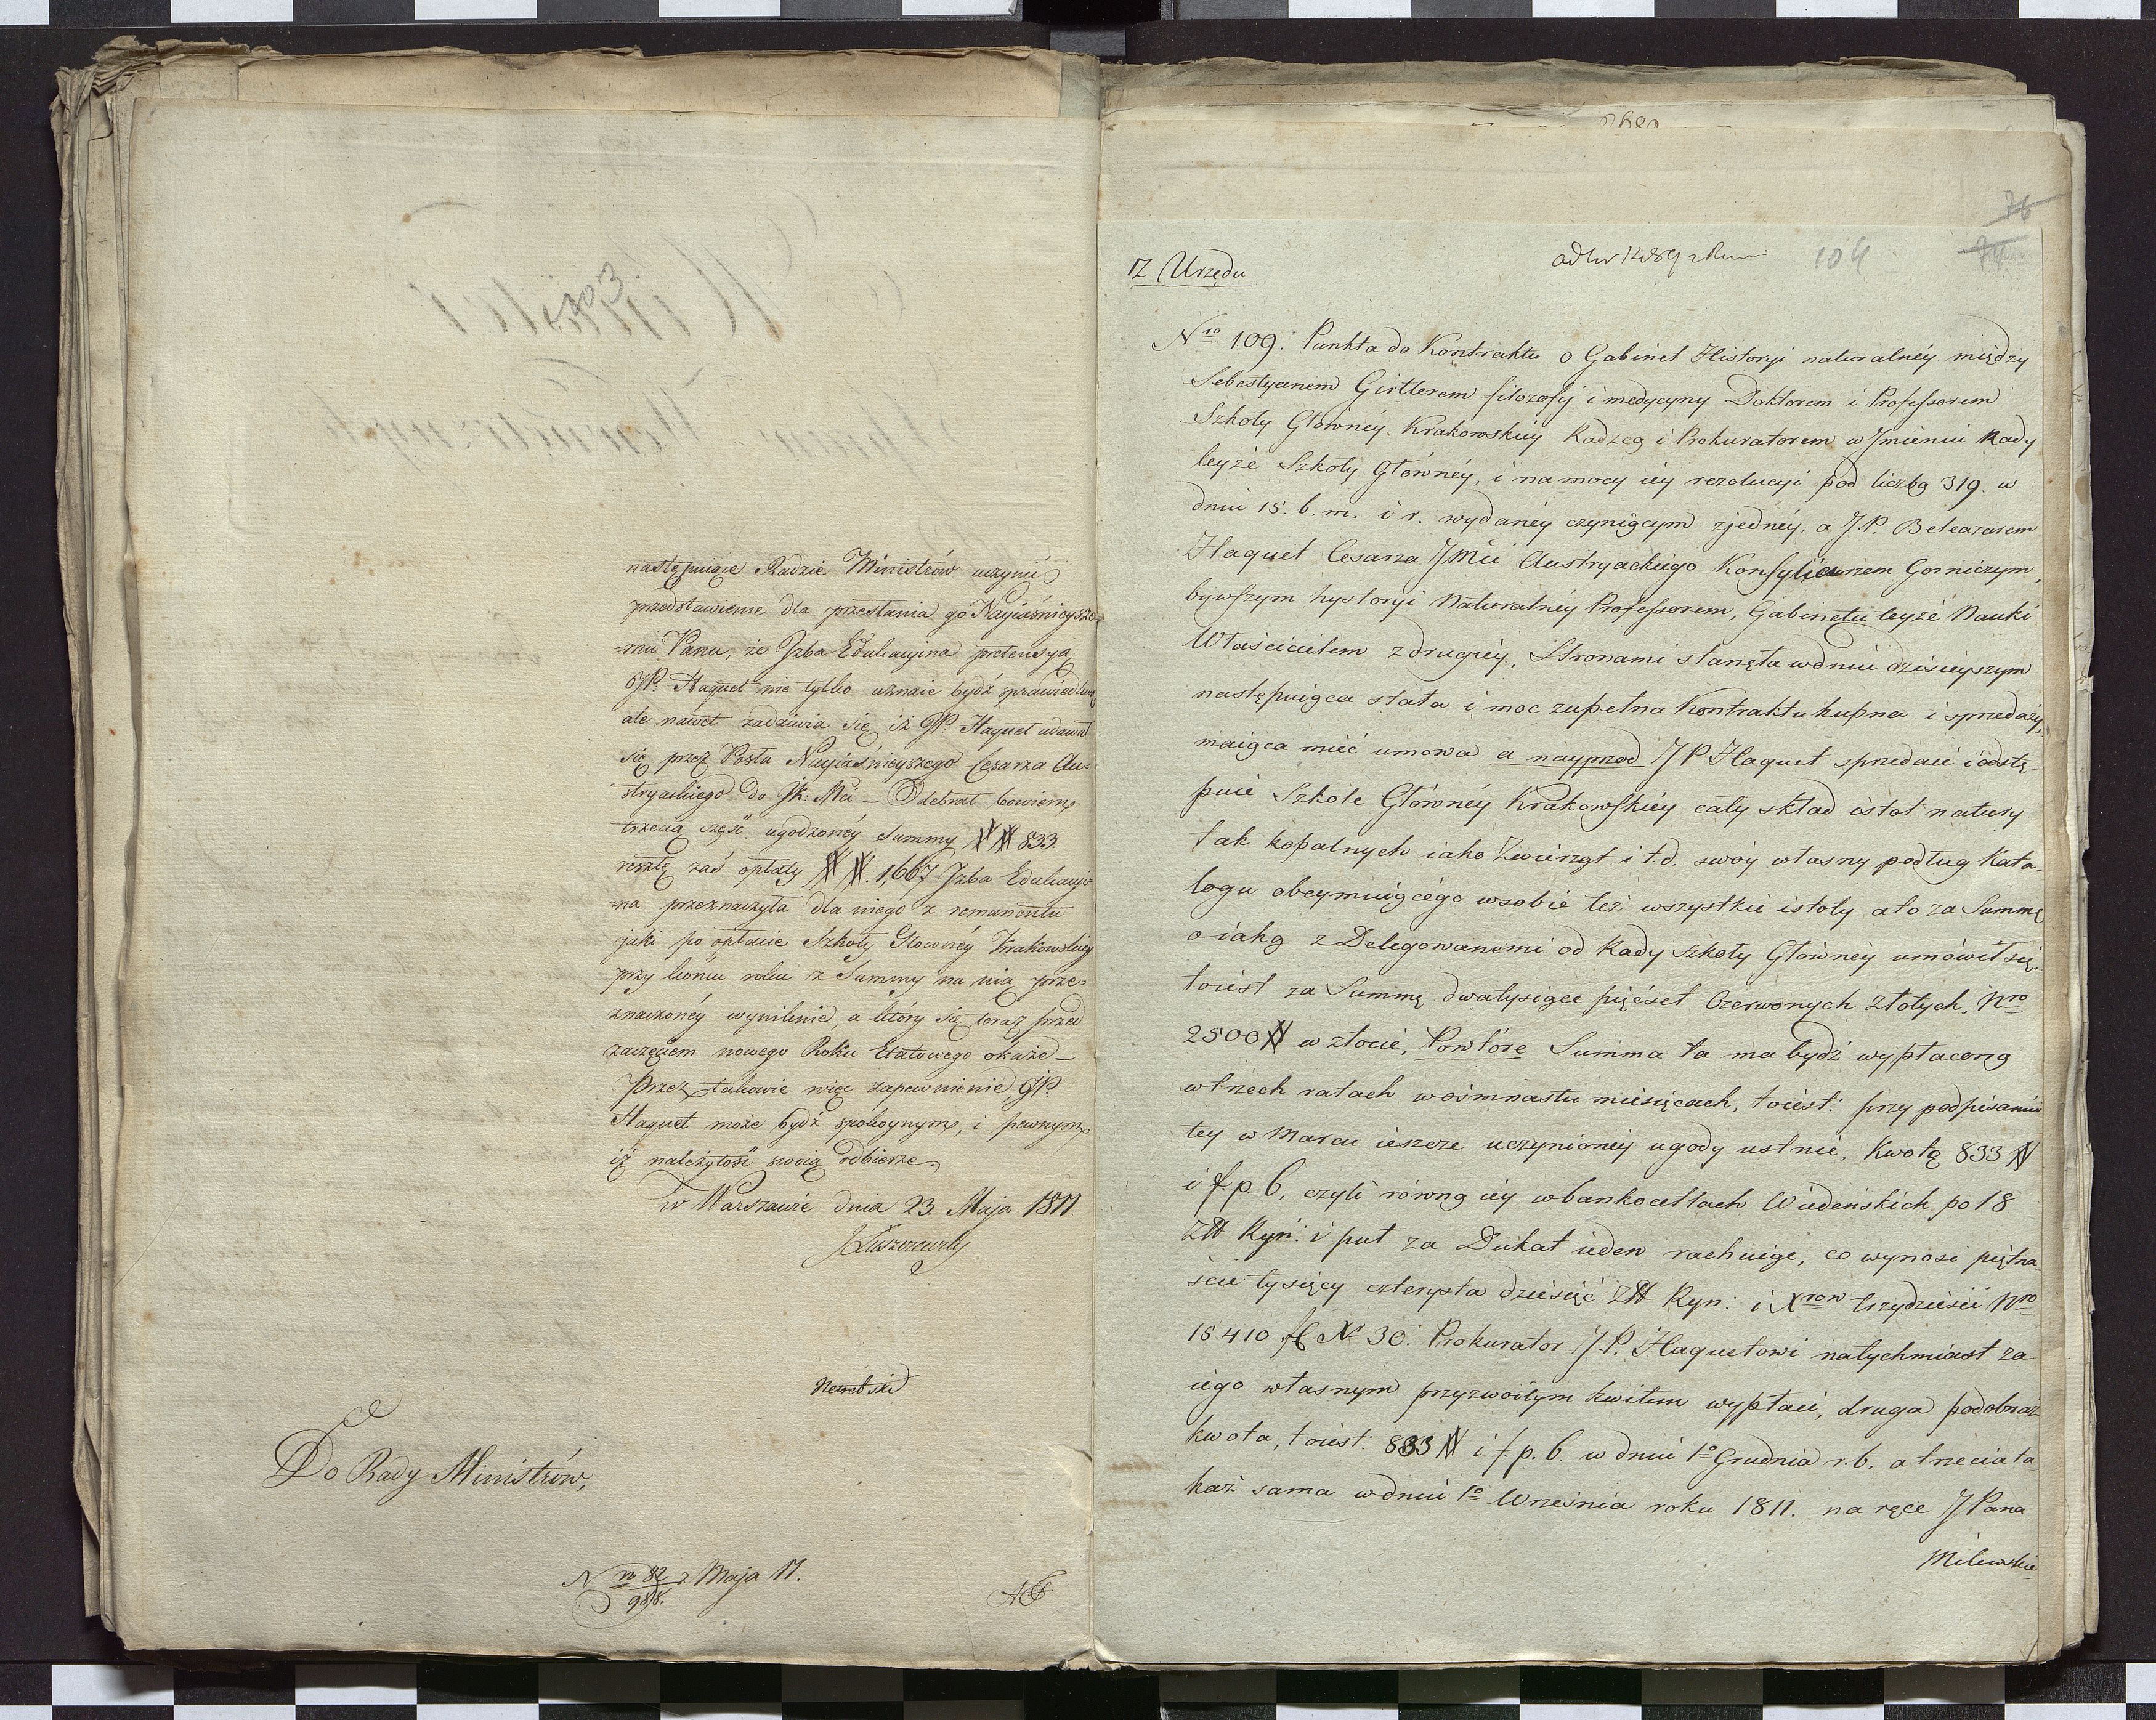 następuiące Radzie Ministrów uczynić
przedstawienie dla przesłania go Nayiaśnieysze-
=mu Panu, że Izba Edukacyina pretensyą
JP. Haquet nie tylko uznaie bydź sprawiedliwą
ale nawet zadziwia się iż JP. Haquet udawał
się przez Posła Nayiaśnieyszego Cesarza Au=
stryackiego do JK: Mci – Odebrał bowiem
trzecią część ugodzoney Summy ## 833.
resztę zaś opłaty ##. 1,667 Izba Edukacyi=
=na przeznaczyła dla niego z remanentu
jaki po opłacie Szkoły Głowney Krakowskiey
przy końcu roku z Summy na nią prze=
znaczoney wyniknie, a który się teraz przed
zaczęciem nowego Roku Etatowego okaże –
Przez takowie więc zapewnienie JP.
Haquet może bydź spokoynym, i pewnym
iż należytość swoią odbierze.
w Warszawie dnia 23. Maja 1811.
JŁuszczewski
Do Rady Ministrów,
N ro 82 z Maja 11.
988.
104
76
Z Urzędu
Nro 109. Punkta do Kontraktu o Gabinet Historyi naturalnéy między
Sebestyanem Girtlerem filozofij i medycyny Doktorem i Professorem
Szkoły Głównéy Krakowskiéy Radzcą i Prokuratorem w Imieniu Rady
teyże Szkoły Głównéy, i na mocy iéy rezolucyi pod liczbą 319. w
dniu 15. b. m. i r. wydanéy czyniącym z jednéy, a J.P. Beleazarem
Haquet Cesarza JMci Austryackiego Konsyliarzem Gorniczym,
bywszym hystoryi Naturalnéy Professorem, Gabinetu teyże Nauki
Właścicielem z drugiéy, Stronami stanęła w dniu dzisieyszym
następuiąca stała i moc zupełna Kontraktu kupna i sprzedaży,
maiąca mieć umowa a nayprzod JP Haquet sprzedaie i odstę-
puie Szkole Głównéy Krakowskiéy cały skład istot natury
tak kopalnych iako Zwierząt i t.d. swóy własny podług Kata-
logu obeymuiącego w sobie też wszystkie istoty a to za Summę
o iaką z Delegowanemi od Rady Szkoły Głównéy umówił się.
to iest za Summę dwa tysiące pięćset Czerwonych Złotych, Nro
2500 # w złocie, Powtóre Summa ta ma bydź wypłaconą
w trzech ratach w ośmnastu miesiącach, to iest: przy podpisaniu
tey w Marcu ieszcze uczynionéy ugody ustnie, Kwotę 833 #
i f. p. 6, czyli równą iéy w bankocetlach Wiedeńskich po 18
Zł Ryń: i puł za Dukat ieden rachuiąc, co wynosi piętna-
ście tysięcy czterysta dziesięć Zł Ryn: i Xrow trzydzieści Nro
15410 fl Xr 30. Prokurator J.P. Haquetowi natychmiast za
iego własnym przyzwoitym kwitem wypłaci, druga podobnaż
kwota, to iest: 833 # i f. p. 6. w dniu 1o Grudnia r.b. a trzecia ta
każ sama w dniu 1o Września roku 1811. na ręce JPana
Milewskie